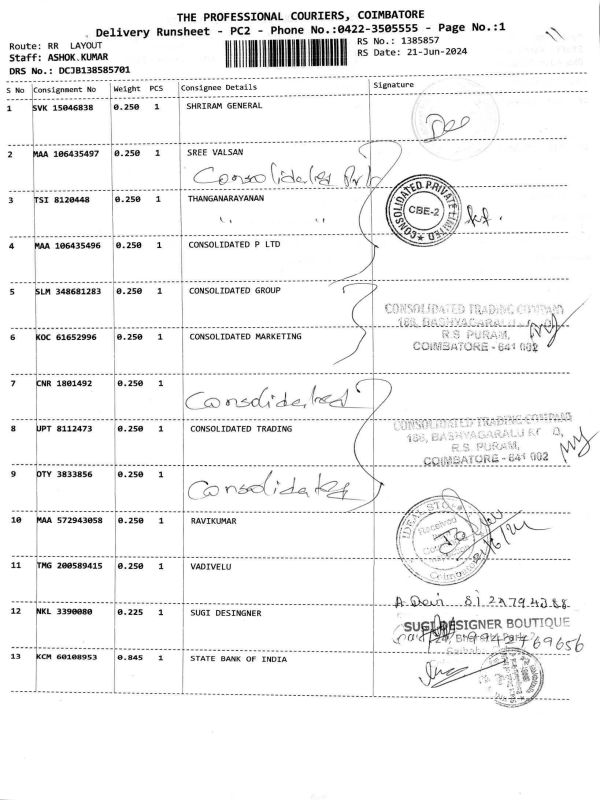 THE PROFESSIONAL COURIERS, COIMBATORE
Delivery Runsheet - PC2 - Phone No.:0422-3505555 - Page No.:1
Route: RR LAYOUT
Staff: ASHOK.KUMAR
DRS No.: DCJB138585701
RS No.: 1385857
RS Date: 21-Jun-2024
S No Consignment No Weight PCS Consignee Details Signature
1 SVK 15046838 0.250 1 SHRIRAM GENERAL
2 MAA 106435497 0.250 1 SREE VALSAN
Consolidated Pvt
CONSOLIDATED PRIVATE LIMITED
CBE-2
3 TSI 8120448 0.250 1 THANGANARAYANAN
" "
4 MAA 106435496 0.250 1 CONSOLIDATED P LTD
5 SLM 348681283 0.250 1 CONSOLIDATED GROUP
CONSOLIDATED TRADING COMPANY
R.S. PURAM,
COIMBATORE - 641 002
6 KOC 61652996 0.250 1 CONSOLIDATED MARKETING
7 CNR 1801492 0.250 1
Consolidated
8 UPT 8112473 0.250 1 CONSOLIDATED TRADING
CONSOLIDATED TRADING COMPANY
R.S. PURAM,
COIMBATORE - 641 002
9 OTY 3833856 0.250 1
Consolidated
10 MAA 572943058 0.250 1 RAVIKUMAR
IDEAL STO
Received
Coimbatore
11 TMG 200589415 0.250 1 VADIVELU
12 NKL 3390080 0.225 1 SUGI DESINGNER
SUGI DESIGNER BOUTIQUE
13 KCM 60108953 0.845 1 STATE BANK OF INDIA